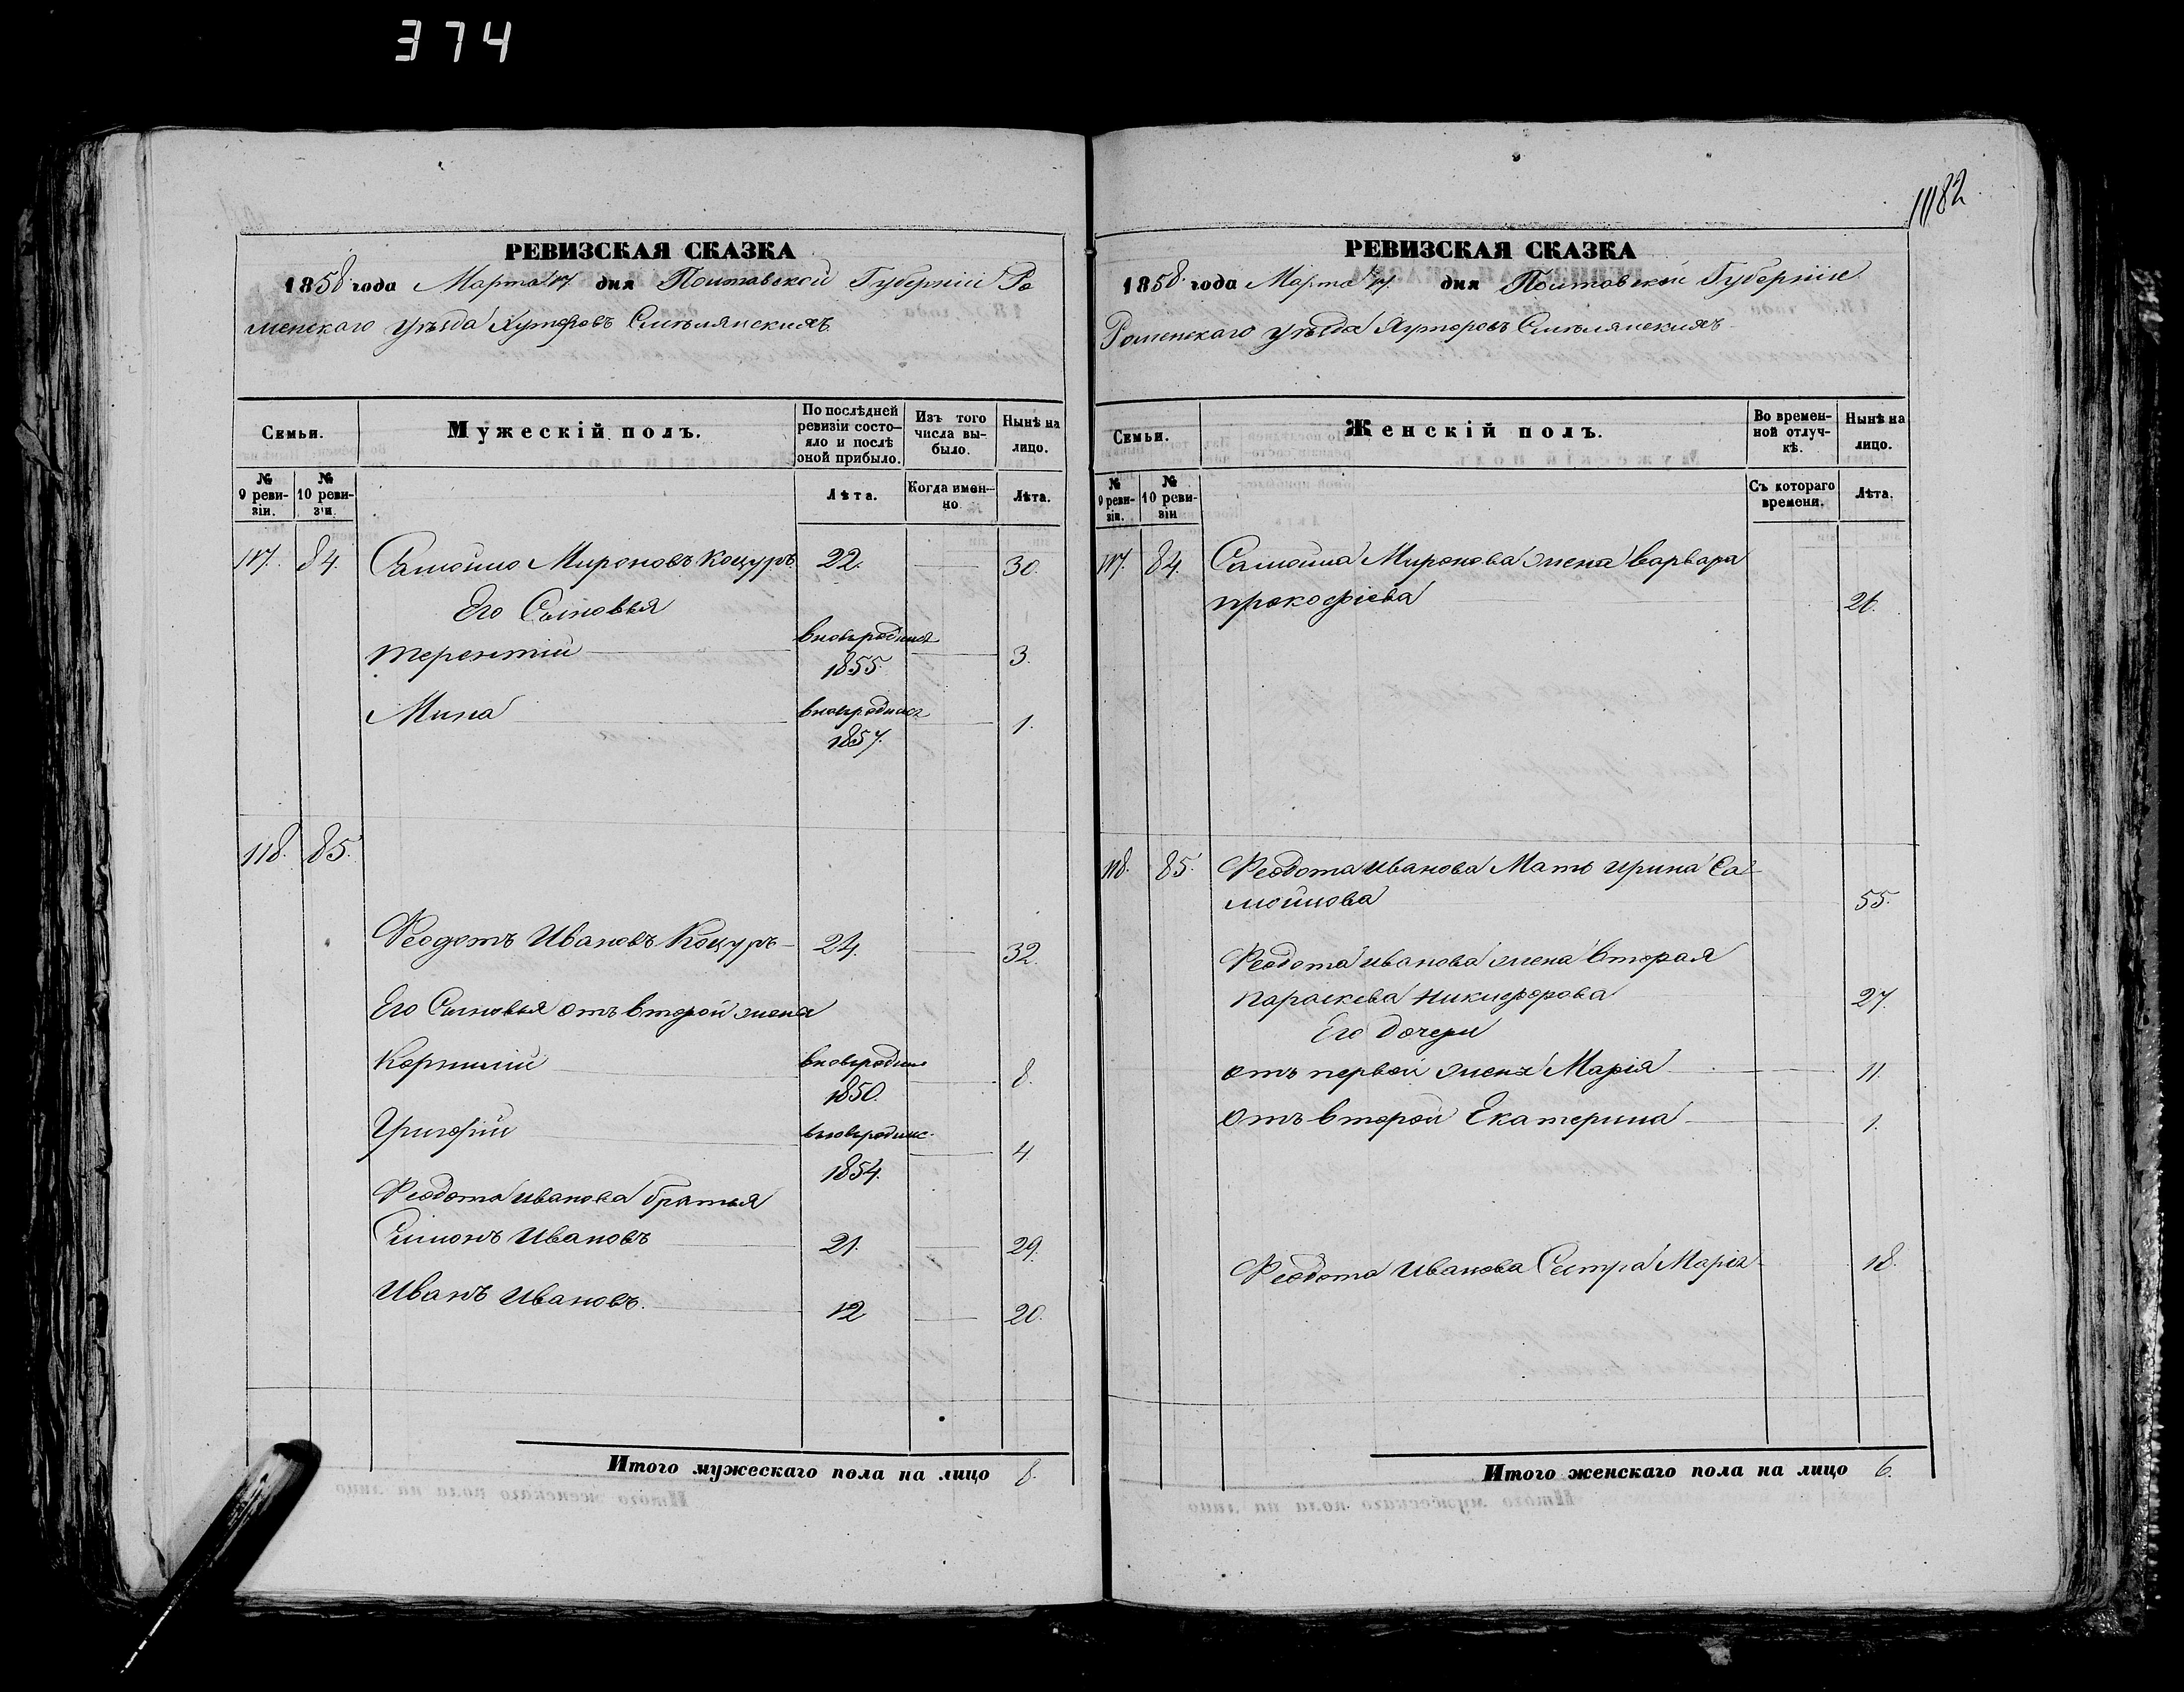 374
1182
РЕВИЗСКАЯ СКАЗКА
1858 года Марта 17 дня Полтавской Губерніи Ро
менскаго уѣзда Хуторовъ Смѣлянскихъ
Семьи.
Мужескій полъ.
По послѣдней
ревизіи состо-
яло и послѣ
оной прибыло.
Изъ того
числа вы-
было.
Нынѣ на
лицо.
№
9 реви-
зіи.
№
10 реви-
зіи.
Лѣта.
Когда имен-
но
Лѣта.
117. 84. Самойло Мироновъ Коцуръ 22. 30.
Его Сыновья
Терентій вновьродился 3.
1855.
Мина вновьродился 1.
1857.
118. 85.
Феодотъ Ивановъ Коцуръ 24. 32.
Его Сыновья отъ второй жены
Корнилій вновьродил 8.
1850.
Григорій вновьродилс. 4
1854.
Феодота Иванова братья
Симонъ Ивановъ 21. 29.
Иванъ Ивановъ. 12 20.
Итого мужескаго пола на лицо 8.
РЕВИЗСКАЯ СКАЗКА
1858. года Марта 17. дня Полтавской Губерніи
Роменскаго уѣзда Хуторовъ Смѣлянскихъ
Семьи.
Женскій полъ.
Во времен-
ной отлуч-
кѣ.
Нынѣ на
лицо.
№
9 реви-
зіи.
№
10 реви-
зіи
Съ котораго
времени.
Лѣта.
117. 84. Самойла Миронова жена Варвара
Прокофіева
118. 85. Феодота Иванова Мать Ирина Са-
мойлова 55.
Феодота Иванова жена вторая
Параскева Никифорова 27.
Его дочери
отъ первой жены Марія 11.
Отъ второй Екатерина 1.
Феодота Иванова Сестра Марія 18.
Итого женскаго пола на лицо 6.